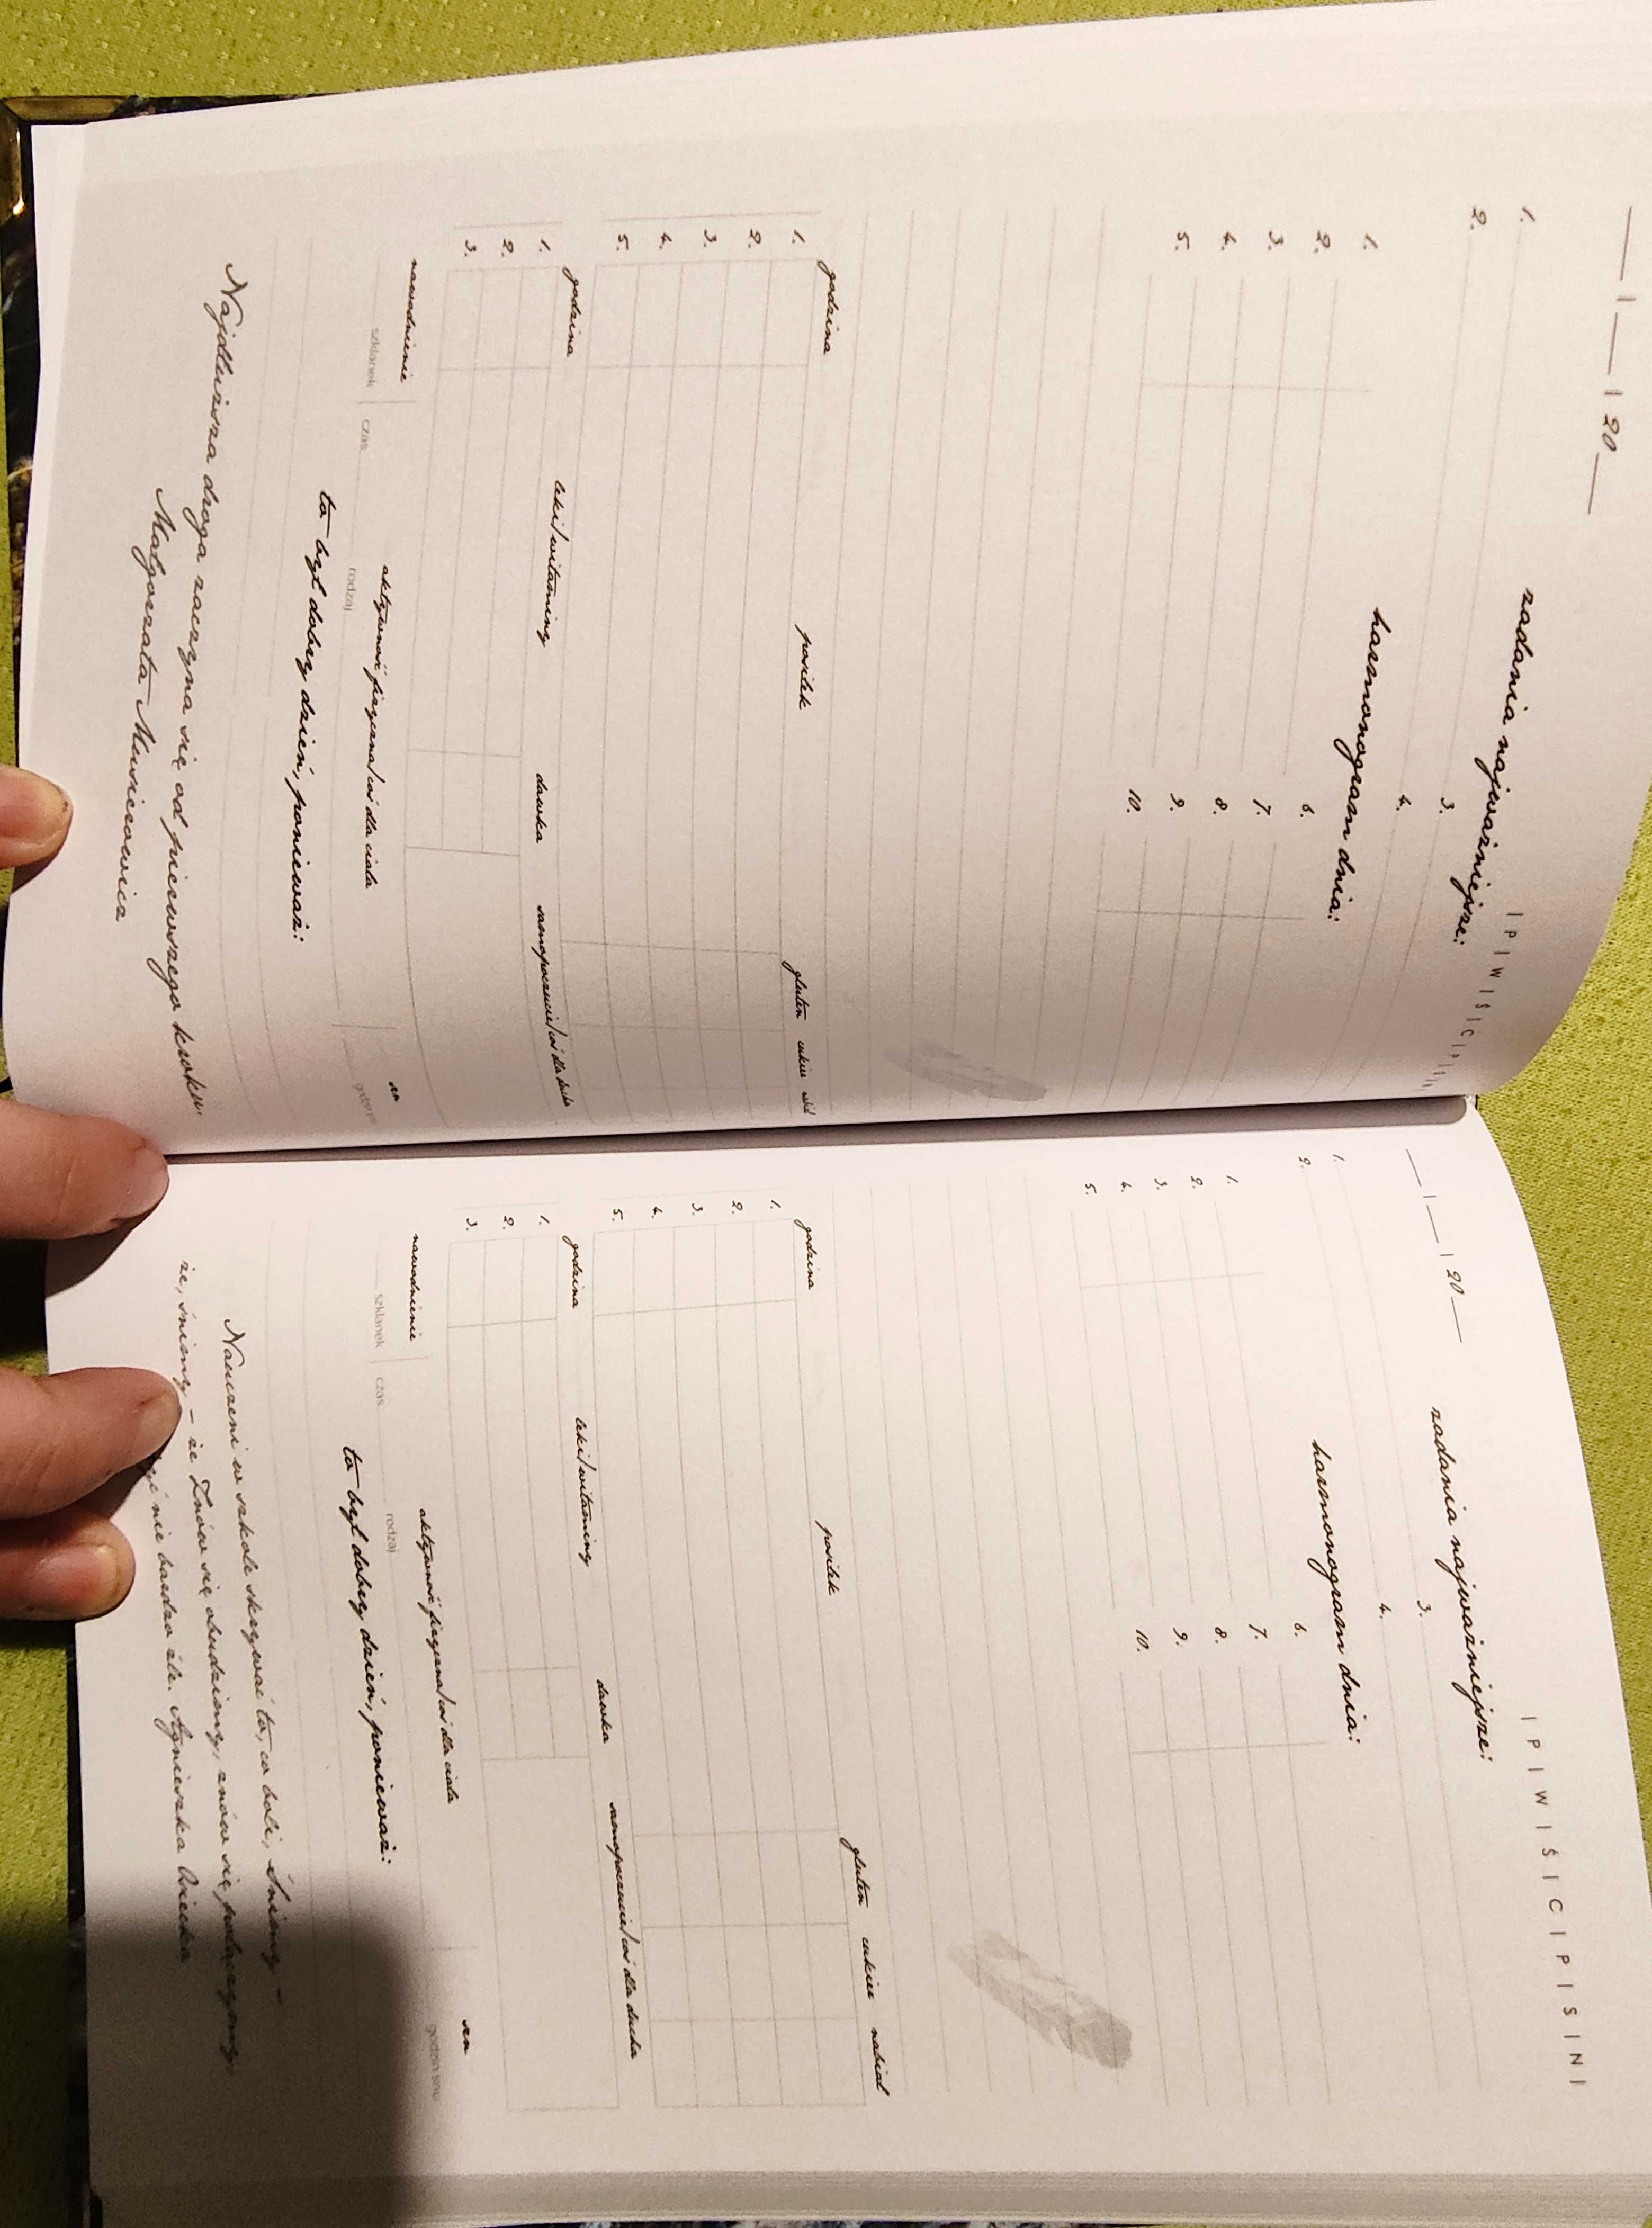 __ | __ | 20 __
| P | W | Ś | C | P | S | N |
zadania najważniejsze:
1. 3.
2. 4.
harmonogram dnia:
1. 6.
2. 7.
3. 8.
4. 9.
5. 10.
godzina posiłek gluten cukier nabiał
1.
2.
3.
4.
5.
godzina leki/witaminy dawka samopoczucie/coś dla ducha
1.
2.
3.
nawodnienie aktywność fizyczna/coś dla ciała sen
szklanek czas rodzaj godzin snu
to był dobry dzień, ponieważ:
Najdłuższa droga zaczyna się od pierwszego kroku.
Małgorzata Musierowicz
__ | __ | 20 __
| P | W | Ś | C | P | S | N |
zadania najważniejsze:
1. 3.
2. 4.
harmonogram dnia:
1. 6.
2. 7.
3. 8.
4. 9.
5. 10.
godzina posiłek gluten cukier nabiał
1.
2.
3.
4.
5.
godzina leki/witaminy dawka samopoczucie/coś dla ducha
1.
2.
3.
nawodnienie aktywność fizyczna/coś dla ciała sen
szklanek czas rodzaj godzin snu
to był dobry dzień, ponieważ:
Nauczeni w szkole skrywać to, co boli, śnimy –
że, śnimy – że Znów się budzimy, znów się
nie bardzo źle. Agnieszka Osiecka